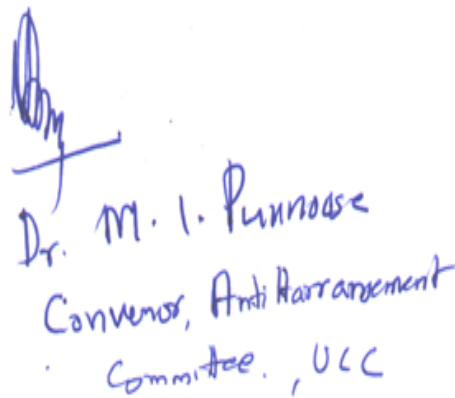 Dr. M. I. Punnoose
Convenor, Anti Harransement
Committee. , UCC